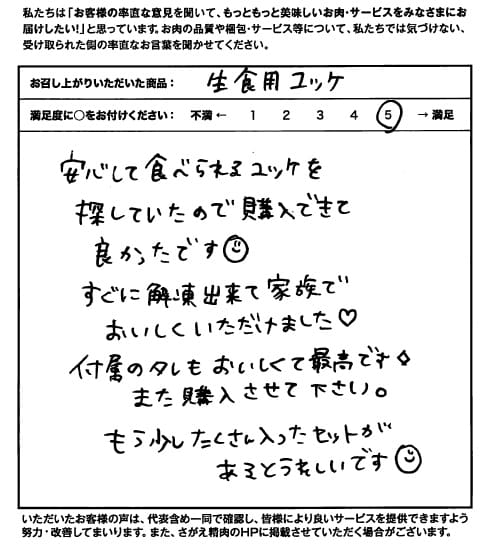 私たちは「お客様の率直な意見を聞いて、もっともっと美味しいお肉・サービスをみなさまにお
届けしたい!」と思っています。お肉の品質や梱包・サービス等について、私たちでは気づけない、
受け取られた側の率直なお言葉を聞かせてください。
お召し上がりいただいた商品: 生食用ユッケ
満足度に○をお付けください: 不満 ← 1 2 3 4 5 → 満足
安心して食べられるユッケを
探していたので購入できて
良かったです☺
すぐに解凍出来て家族で
おいしくいただけました♡
付属のタレもおいしくて最高です✧
また購入させて下さい。
もう少したくさん入ったセットが
あるとうれしいです☺
いただいたお客様の声は、代表含め一同で確認し、皆様により良いサービスを提供できますよう
努力・改善してまいります。また、さがえ精肉のHPに掲載させていただく場合がございます。